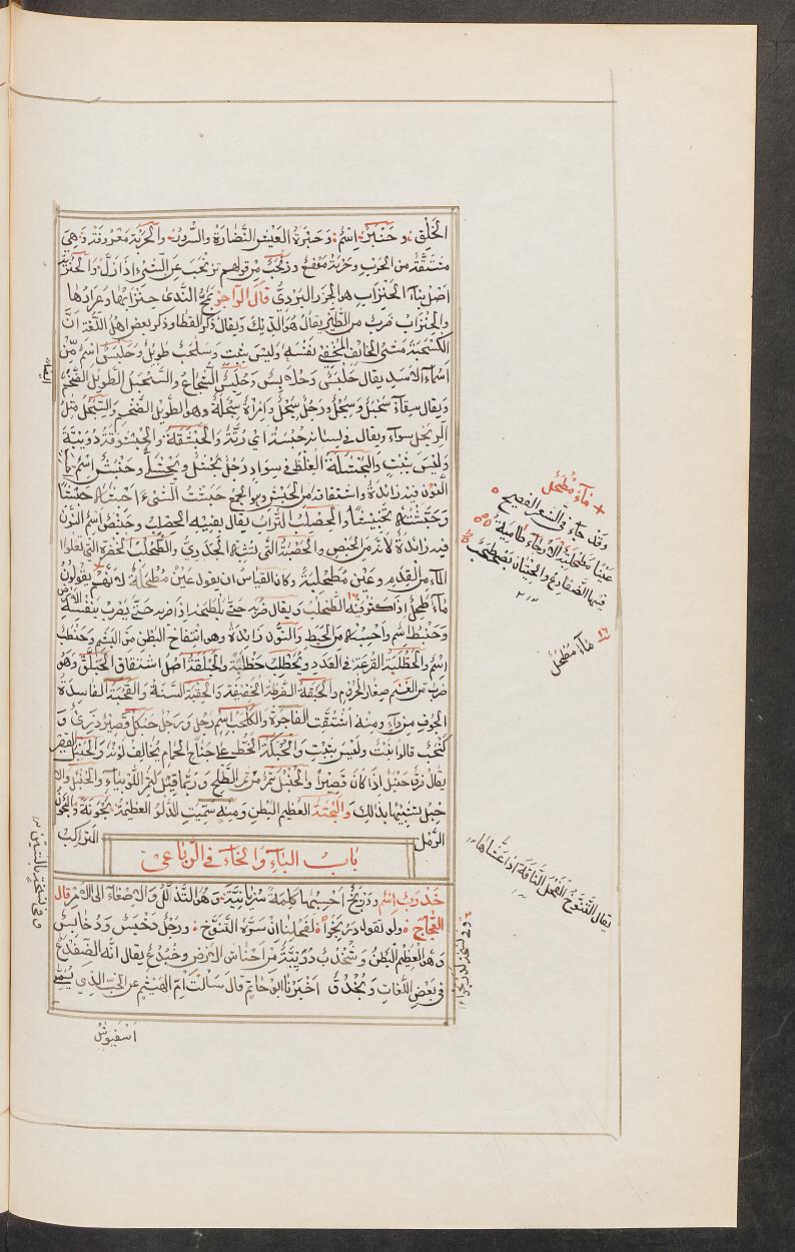 الخلق وحنبر اسم وحبرة العيش النضارة والسرور والحربة معروفة وهي
مشتقة من الحرب وحربة موضع وزحب من قولهم تزحب عن الشيء اذا زل والحنزاب
اصل بناء الحنزاب هو الجزر البري قال الراجز يمج الندى حنزابها وعرادها
والحنزاب ضرب من الطير يقال هو الديك ويقال ذكر القطا وذكر بعض اهل اللغة ان
الكسحبة مشي الخائف المخفي نفسه وليس بثبت وسلحب طويل وحلبس اسم من
اسماء الاسد يقال حلبس وحلابس وحلبس الشجاع والسحبل الطويل الضخم
ويقال سقاء سحبل وسبحل ورجل سبحل وامراة سبحلة وهو الطويل الضخم والسبحل مثل
الربحل سواء ويقال في لسانه حبسة اي رتة والحبشقة والحبشوقة دويبة
وليس بثبت والحبشلة الغلظ في سواد رجل بحشل وبحشلي وحنبش اسم
النون فيه زائدة واشتقاقه من الحبش وهو الجمع حبشت الشيء احبشه حبشا
وحبشته تحبيشا والحصلب التراب يقال بفيه الحصلب وحنبص اسم النون
فيه زائدة لانه من الحبص والحصبة التي تشبه الجدري والطحلب الخضرة التي تعلو
الماء من القدم وعين مطحلبة وكان القياس ان يقول عين مطحلة لانهم يقولون
ماء طحل اذا كثر فيه الطحلب ويقال ضربه حتى بلطحه اذا ضربه حتى يضرب بنفسه الارض
وحنبط اسم واحسبه من الحبط والنون زائدة وهو انتفاخ البطن من البشم وحنطب
ضرب من الغنم صغار الجروم والحبقة الضرطة الخفيفة والحقبة السنة والقحبة الفاسدة
الجوف من داء ومنه اشتقت الفاجرة والكلحب اسم رجل ورجل حبكل قصير زري و
كنحب قالوا نبت وليس بثبت والحبكة الخط على جناح الحمام يخالف لونه والحنبل القصير
يقال فرو حنبل اذا كان قصيرا والحنبل ثمر من ثمر الطلح وربما قيل لثمر اللوبياء والحنبل
حبل تشبيها بذلك والبحنة العظيم البطن ومنه سميت الدلو العظيمة بحونة والبحون
الرمل المتراكب
باب الباء والخاء في الرباعي
خدرب اسم ودربخ احسبها كلمة سريانية وهو التذلل والاصغاء الى الامر قال
العجاج ولو نقول دربخوا لدربخوا لفحلنا ان سره التنوخ ورجل دخبس ودخابس
وهو العظيم البطن وشخدب دويبة من احناش الارض وخبدع يقال انه الضفدع
في بعض اللغات وبخدق اخبرنا ابو حاتم قال سالت ام الهيثم عن الحب الذي يسمى
اسفيوش
ماء مطحل
وقد جاء في الشعر الفصيح
عينا مطحلبة الارجاء طامية
فيها الضفادع والحيتان تصطخب
ماء مطحل
يقال التنوخ الفحل الناقة اذا غشاها